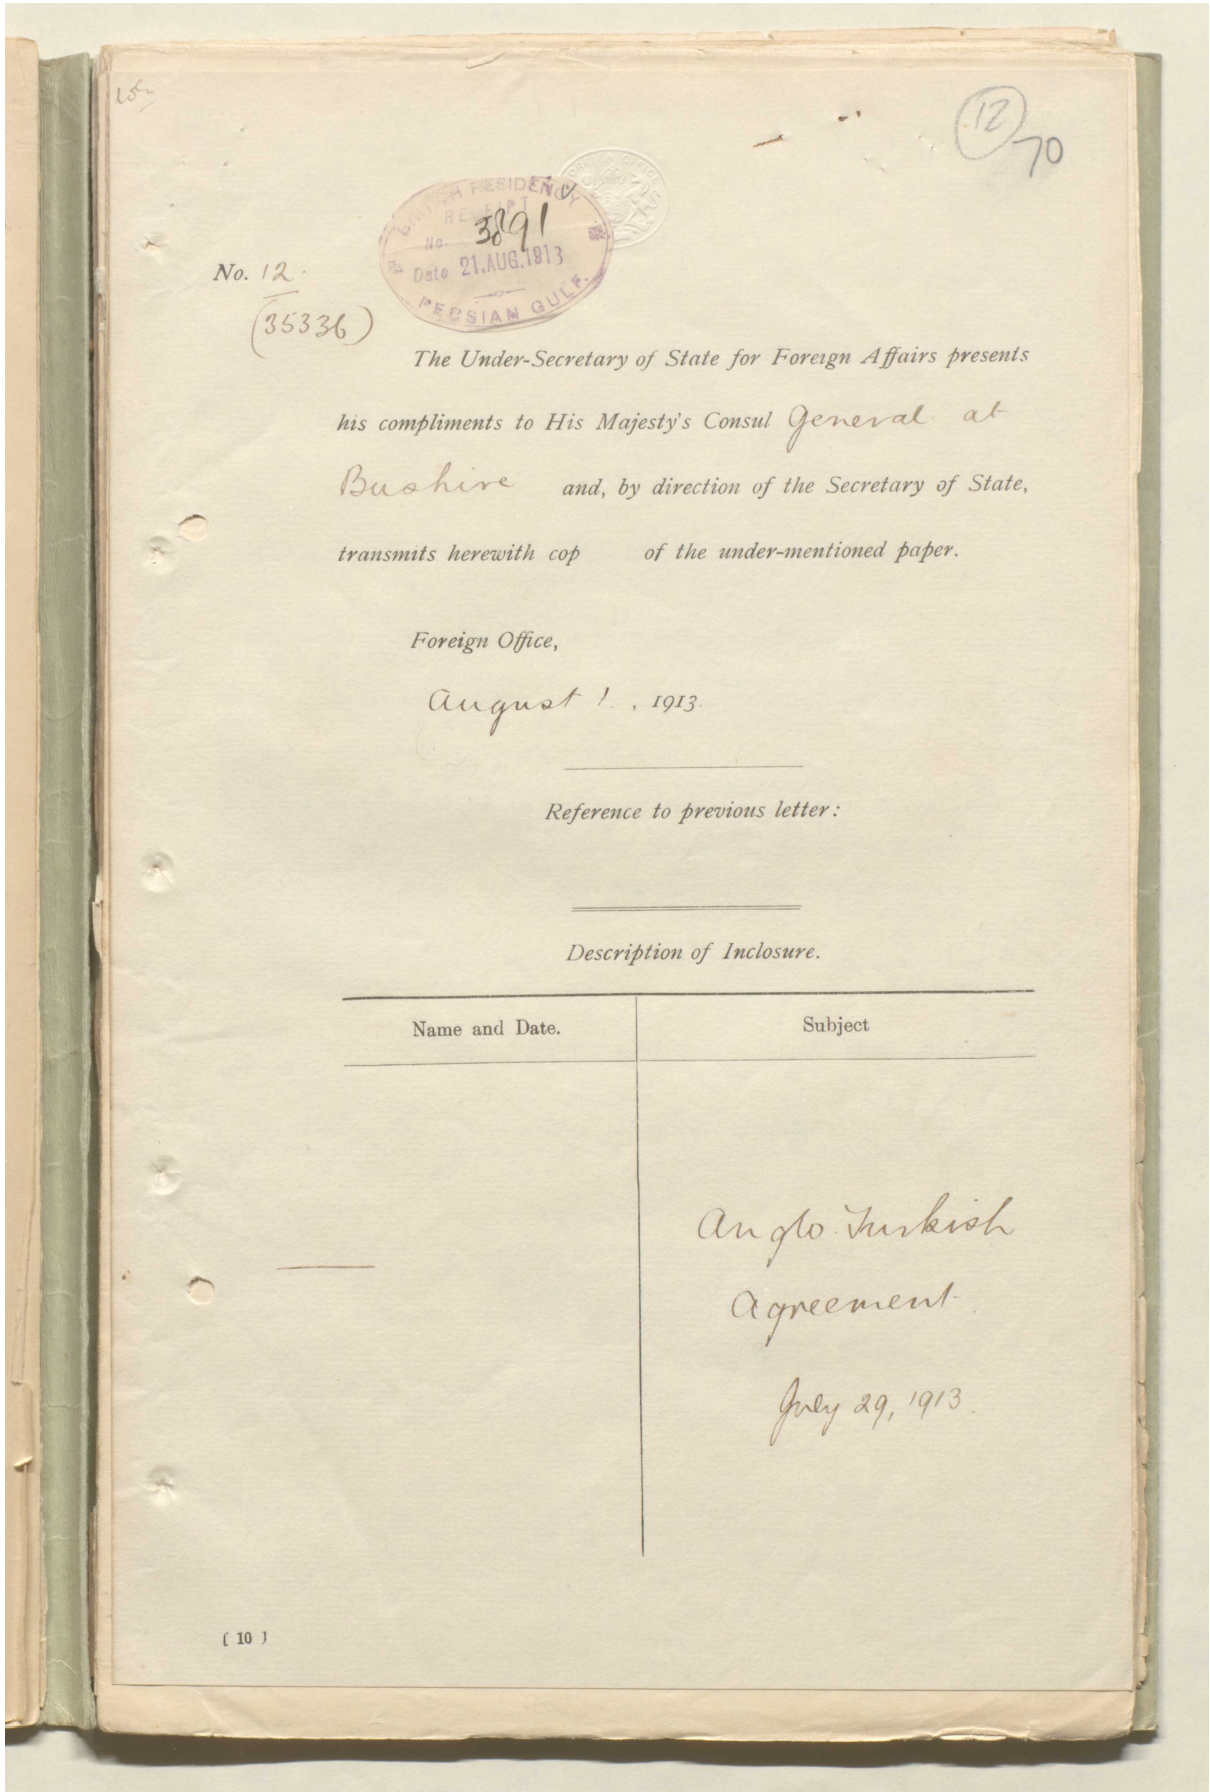 12
70
FOREIGN OFFICE
BRITISH RESIDENCY
RECEIPT
No. 3891
Date 21.AUG.1913
PERSIAN GULF.
No. 12.
(35336)
The Under-Secretary of State for Foreign Affairs presents
his compliments to His Majesty's Consul General at
Bushire and, by direction of the Secretary of State,
transmits herewith cop of the under-mentioned paper.
Foreign Office,
August 1, 1913.
Reference to previous letter:
Description of Inclosure.
Name and Date. Subject
Anglo-Turkish
Agreement.
July 29, 1913.
( 10 )